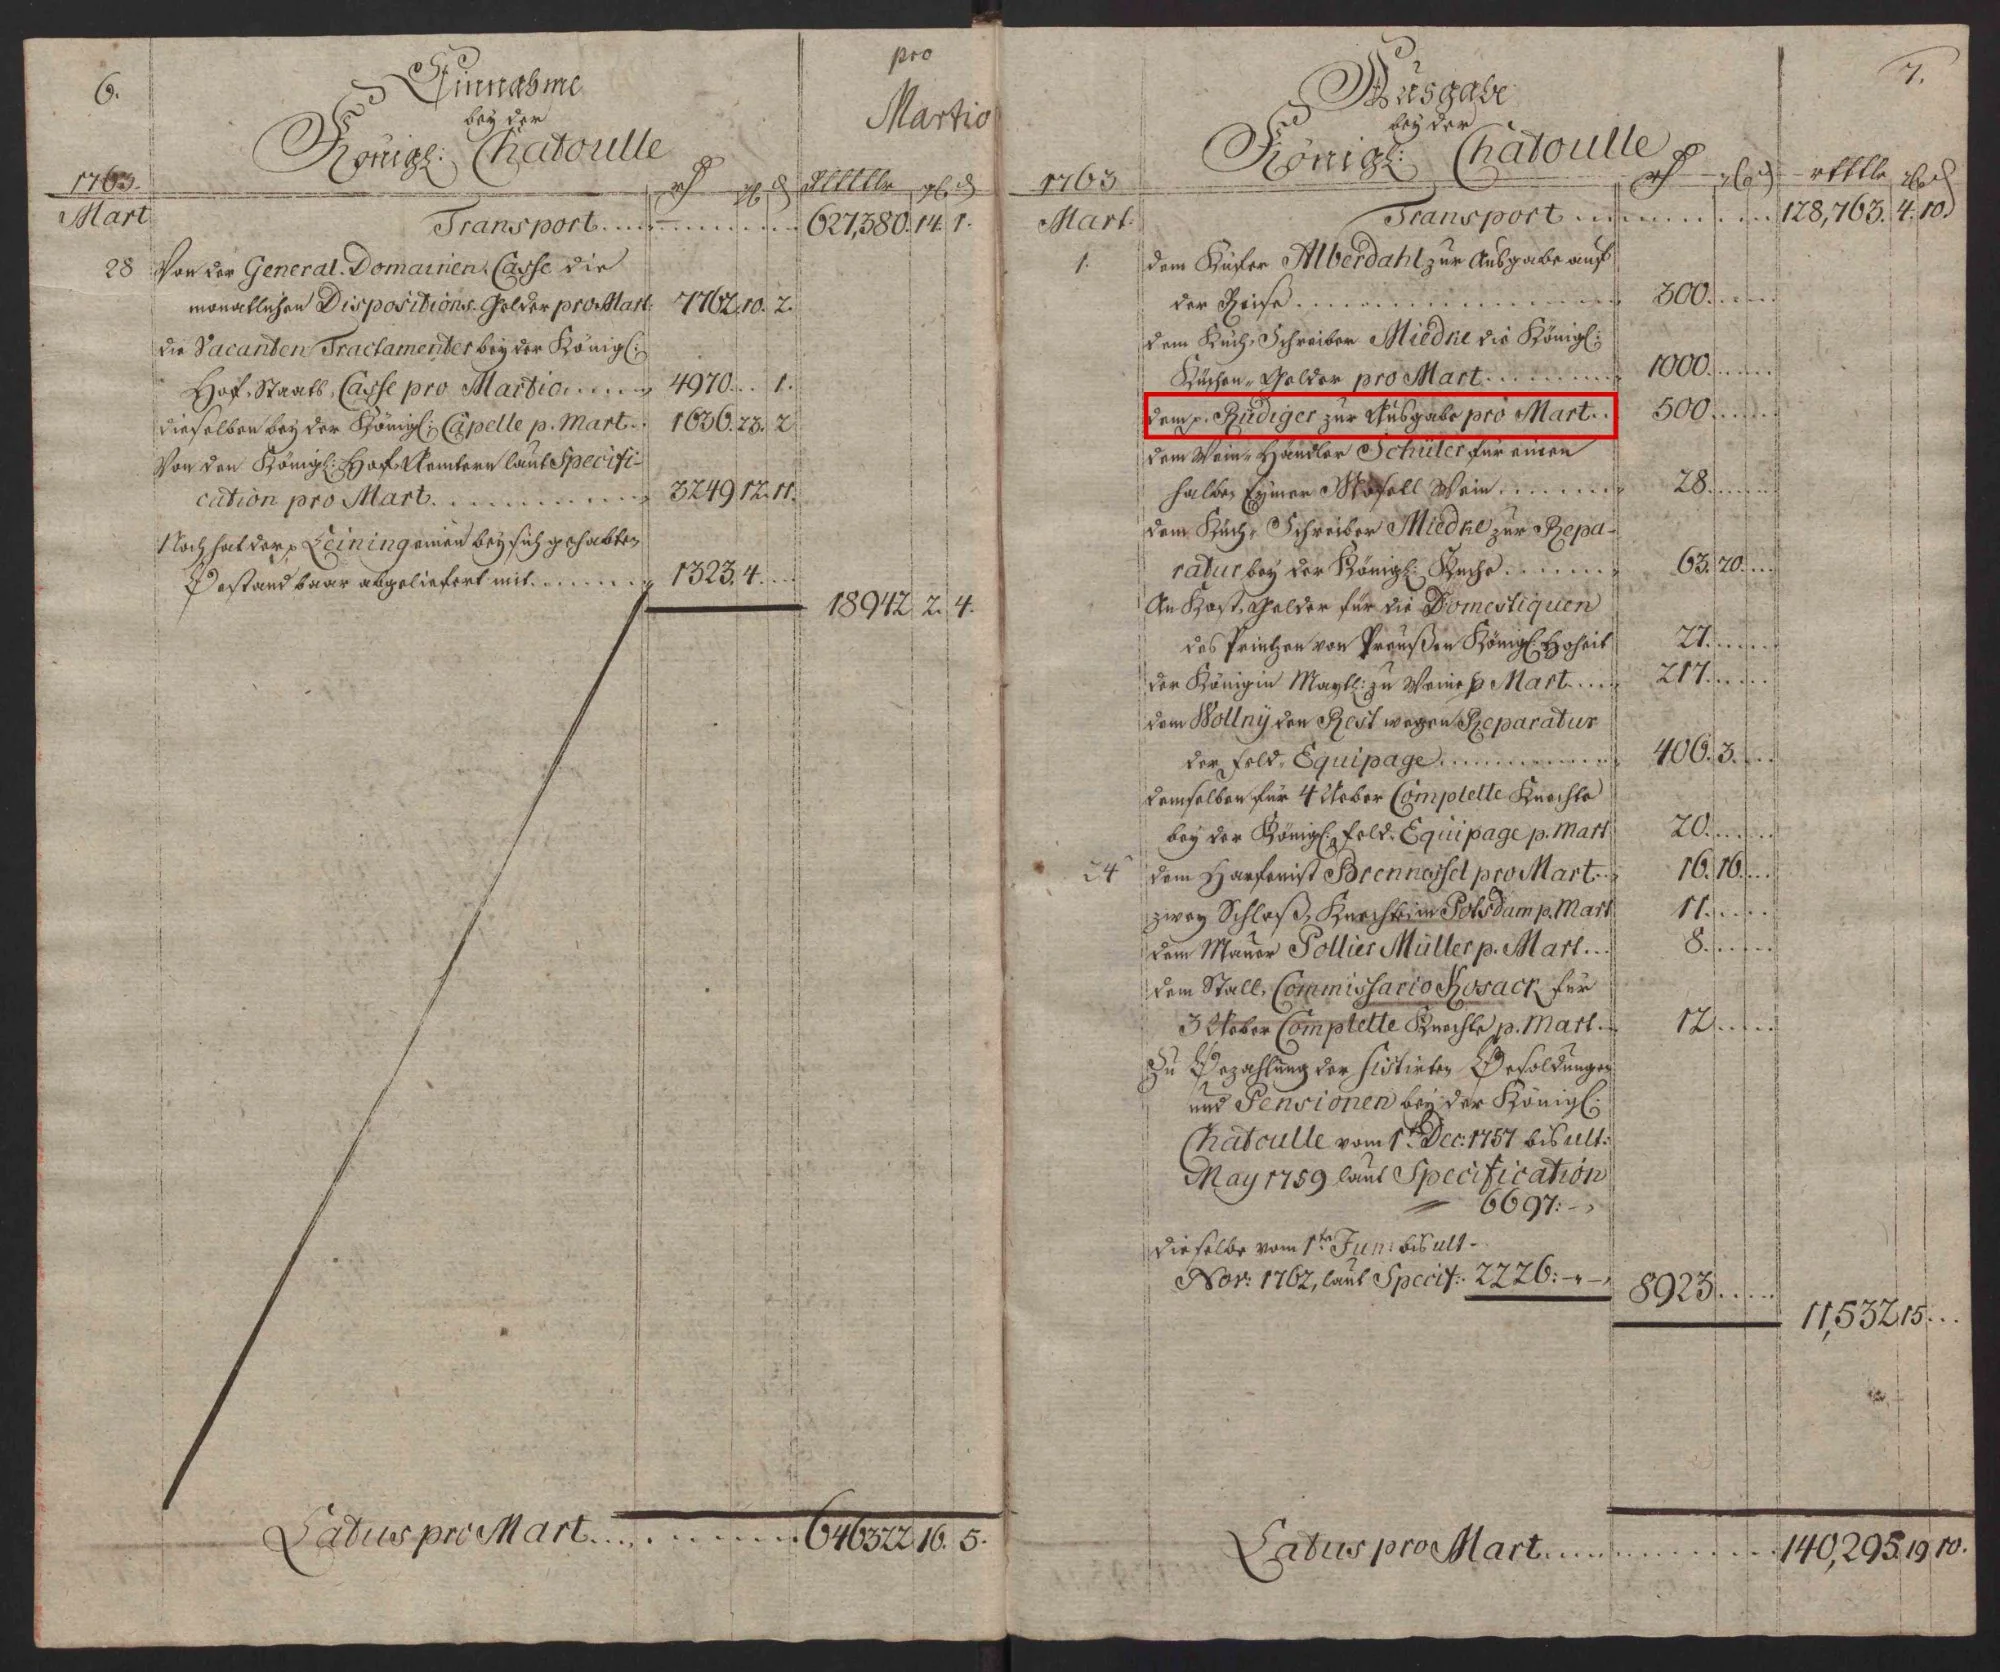 6.
Einnahme
bey der
Königl: Chatoulle
pro
Martio
1763.
Mart
Transport 627,380. 14. 1.
28 Von der General-Domainen-Casse die
monatlichen Dispositions-Gelder pro Mart: 7762. 10. 2.
die Vacanten Tractamenter bey der Königl:
Hof-Staats-Casse pro Martio 4970. 1.
dieselben bey der Königl: Capelle p. Mart 1636. 23. 2
Von den Königl: Hof-Aemtern laut Specifi-
cation pro Mart. 3249 12. 11.
Noch hat der p. Leining einen bey sich gehabten
Bestand baar abgeliefert mit 1323. 4.
18942 2. 4.
Latus pro Mart 646322 16. 5.
7.
Ausgabe
bey der
Königl: Chatoulle
1763
Mart:
Transport 128,763. 4. 10
1. dem Küfer Alberdahl zur Ausgabe auf
der Reise 300.
dem Küch-Schreiber Miedke die Königl:
Küchen-Gelder pro Mart 1000.
dem p. Rüdiger zur Ausgabe pro Mart 500.
dem Wein-Händler Schüler für einen
halben Eymer Mosell Wein 28.
dem Küch-Schreiber Miedke zur Repa-
ratur bey der Königl: Küche 63. 20.
An Kost-Gelder für die Domestiquen
des Printzen von Preußen Königl: Hoheit 27.
der Königin Maytt: zu Weine p Mart 217.
dem Wollny den Rest wegen Reparatur
der Feld-Equipage 406. 3.
demselben für 4 Ueber Complette Knechte
bey der Königl: Feld-Equipage p. Mart 20.
24 dem Harfenist Brennessel pro Mart 16. 16.
zwey Schloß-Knechte in Potsdam p. Mart 11.
dem Mauer Pollier Müller p. Mart 8.
dem Stall-Commissario Kosack für
3 Ueber Complette Knechte p. Mart 12
Zu Bezahlung der sistirten Besoldungen
und Pensionen bey der Königl:
Chatoulle vom 1ten Dec: 1757 bis ult:
May 1759 laut Specification
6697:
dieselbe vom 1ten Juni bis ult
Nov: 1762, laut Specif: 2226: 8923
11,532 15.
Latus pro Mart 140,295. 19 10.